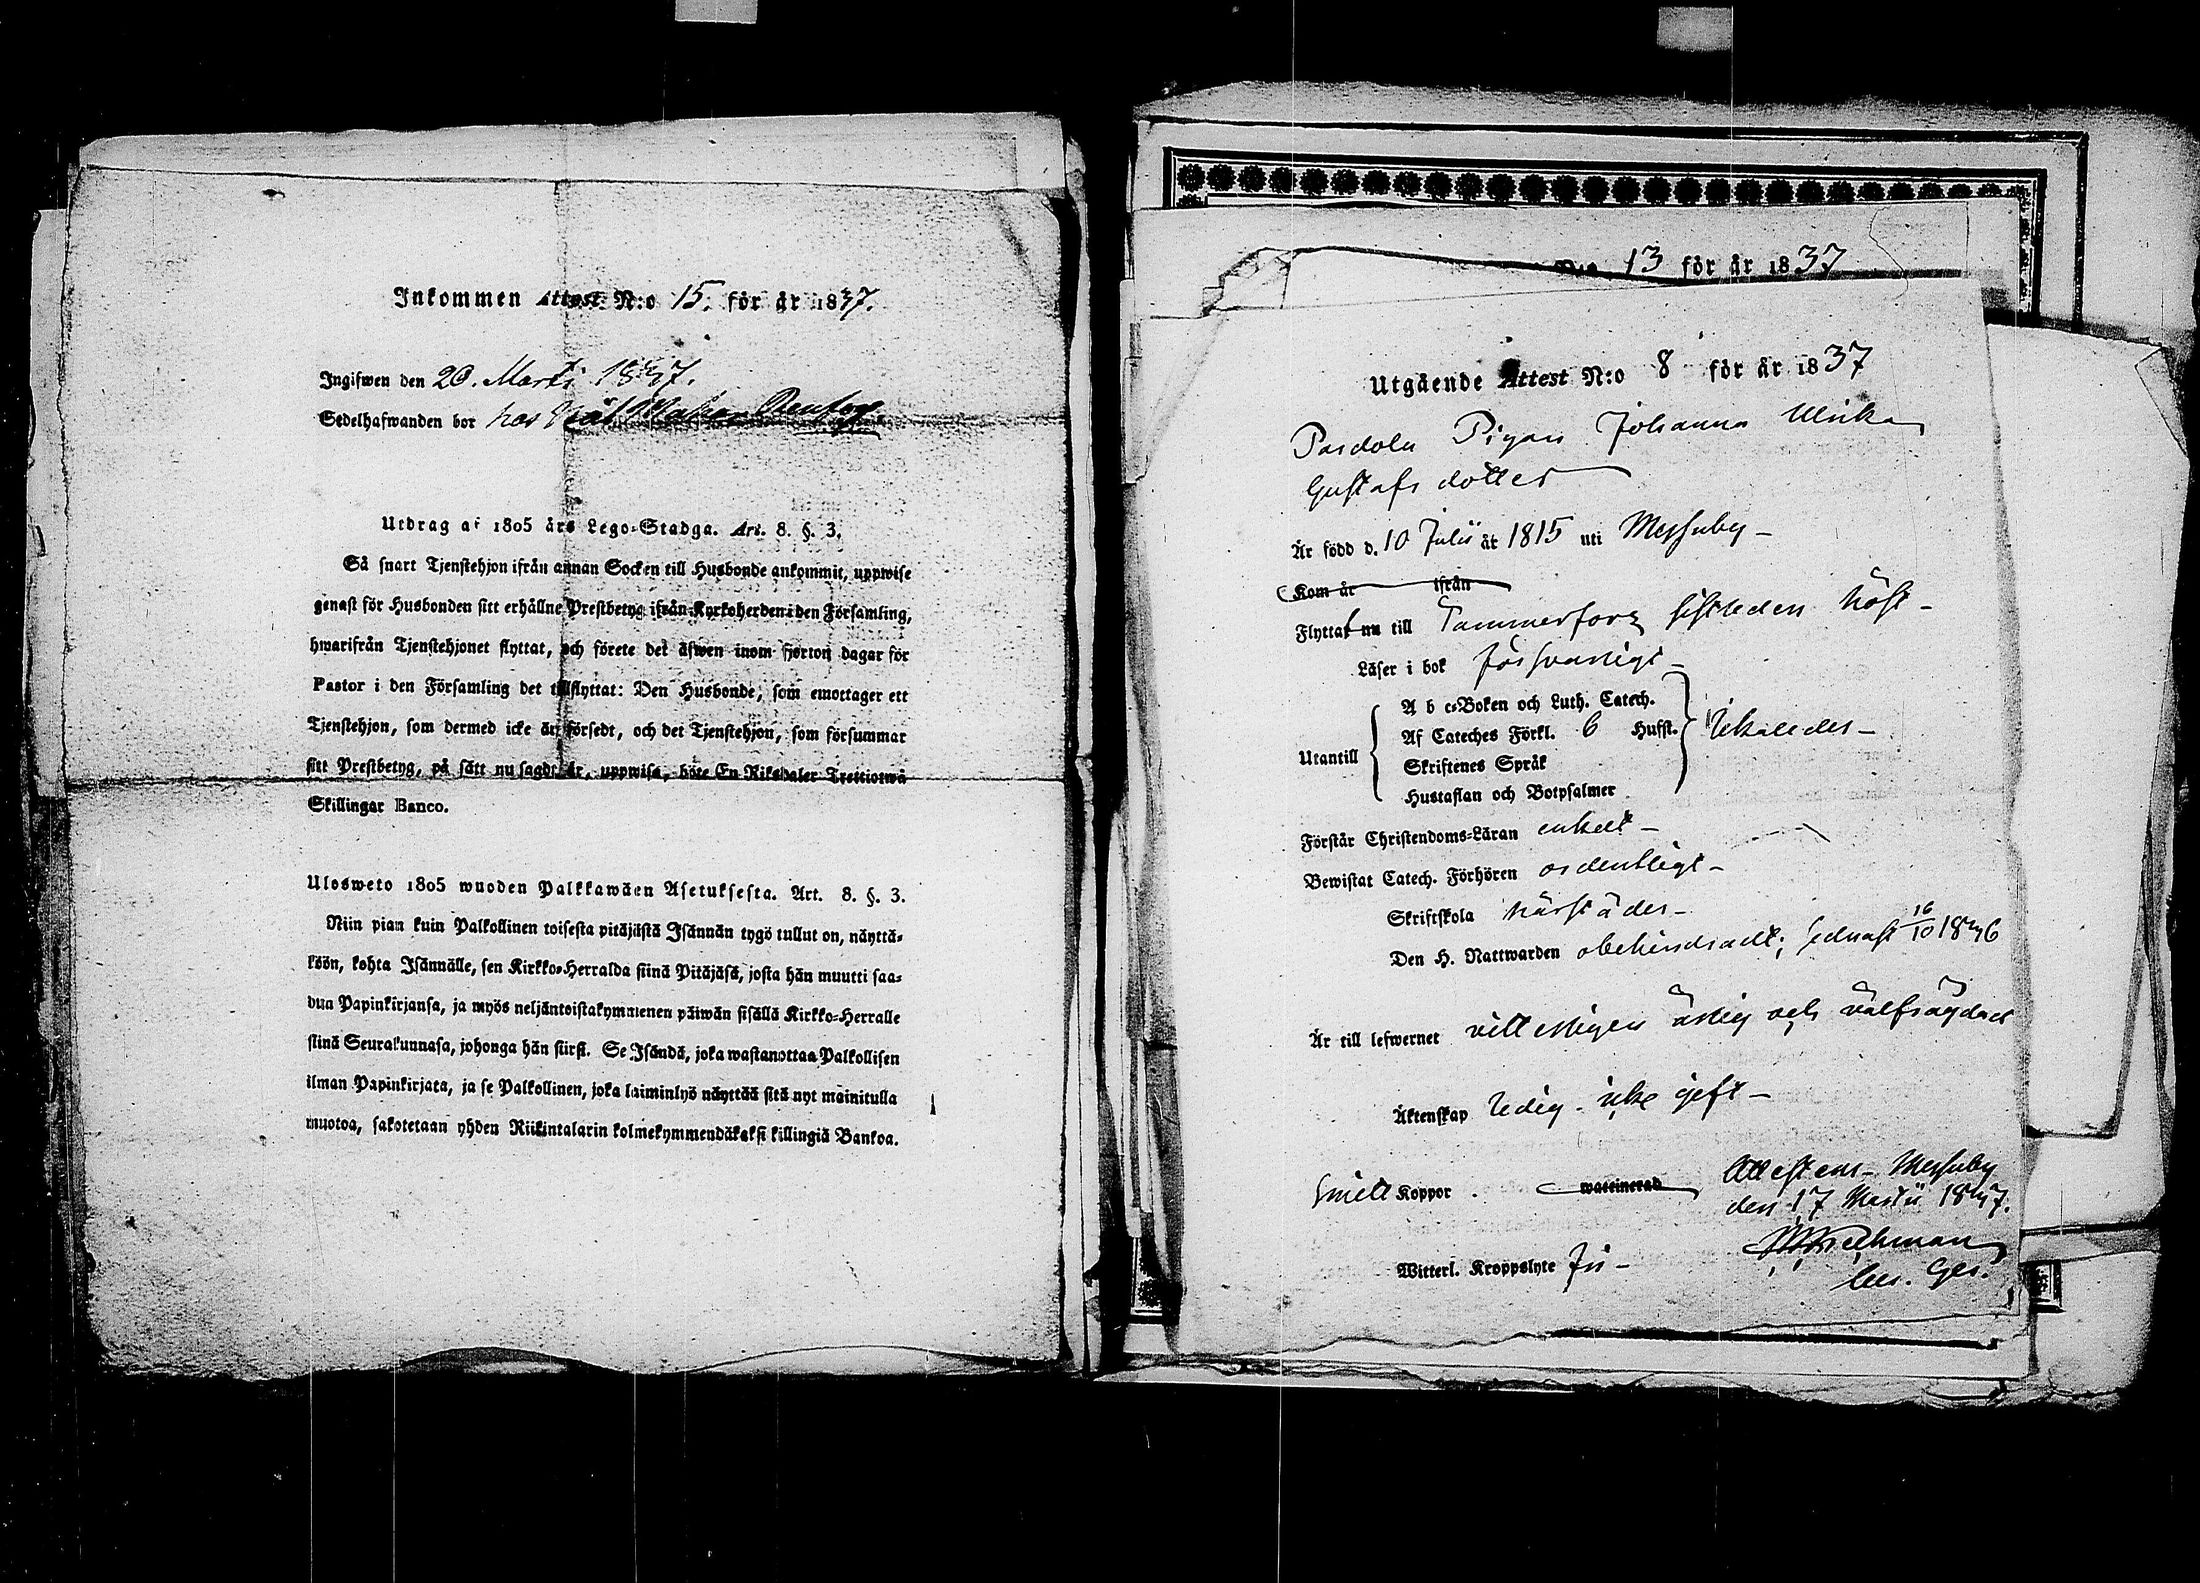 Inkommen Attest N:o 15. för år 1837.
Ingifwen den 20. Martii 1837.
Sedelhafwanden bor hos
Utdrag af 1805 års Lego-Stadga. Art. 8. §. 3.
Så snart Tjenstehjon ifrån annan Socken till Husbonde ankommit, uppwise
genast för Husbonden sitt erhållne Prestbetyg ifrån Kyrkoherden i den Församling,
hwarifrån Tjenstehjonet flyttat, och förete det äfwen inom fjorton dagar för
Pastor i den Församling det tillflyttat: Den Husbonde, som emottager ett
Tjenstehjon, som dermed icke är försedt, och det Tjenstehjon, som försummar
sitt Prestbetyg, på sätt nu sagdt är, uppwisa, böte En Riksdaler Trettiotwå
Skillingar Banco.
Ulosweto 1805 wuoden Palkkawäen Asetuksesta. Art. 8. §. 3.
Niin pian kuin Palkollinen toisesta pitäjästä Isännän tygö tullut on, näyttä-
köön, kohta Isännälle, sen Kirkko-Herralda siinä Pitäjäsä, josta hän muutti saa-
dua Papinkirjansa, ja myös neljäntoistakymmenen päiwän sisällä Kirkko-Herralle
siinä Seurakunnasa, johonga hän siirsi. Se Isändä, joka wastanottaa Palkollisen
ilman Papinkirjata, ja se Palkollinen, joka laiminlyö näyttää sitä nyt mainitulla
muotoa, sakotetaan yhden Riikintalarin kolmekymmendäkaksi killingiä Bankoa.
N:o 13 för år 1837
Utgående Attest N:o 8 för år 1837
Pardola Pigan Johanna Ulrika
Gustafs dotter
Är född d. 10 Julii år 1815 uti Messuby
Kom år ifrån
Flyttat nu till Tammerfors sistleden höst
Läser i bok försvarligt
A b c-Boken och Luth. Catech.
Af Cateches Förkl. 6 Hufst.
Utantill likaledes
Skriftenes Språk
Hustaflan och Botpsalmer
Förstår Christendoms-Läran enkelt
Bewistat Catech. Förhören ordentligt
Skriftskola härstädes
Den H. Nattwarden obehindradt; sednast 16/10 1836
Är till lefwernet ärlig och välfrägdad
Äktenskap ledig - icke gift
Koppor . waccinerad
Attesteras Messuby
den 17 Martii 1837.
Witterl. Kroppslyte fri